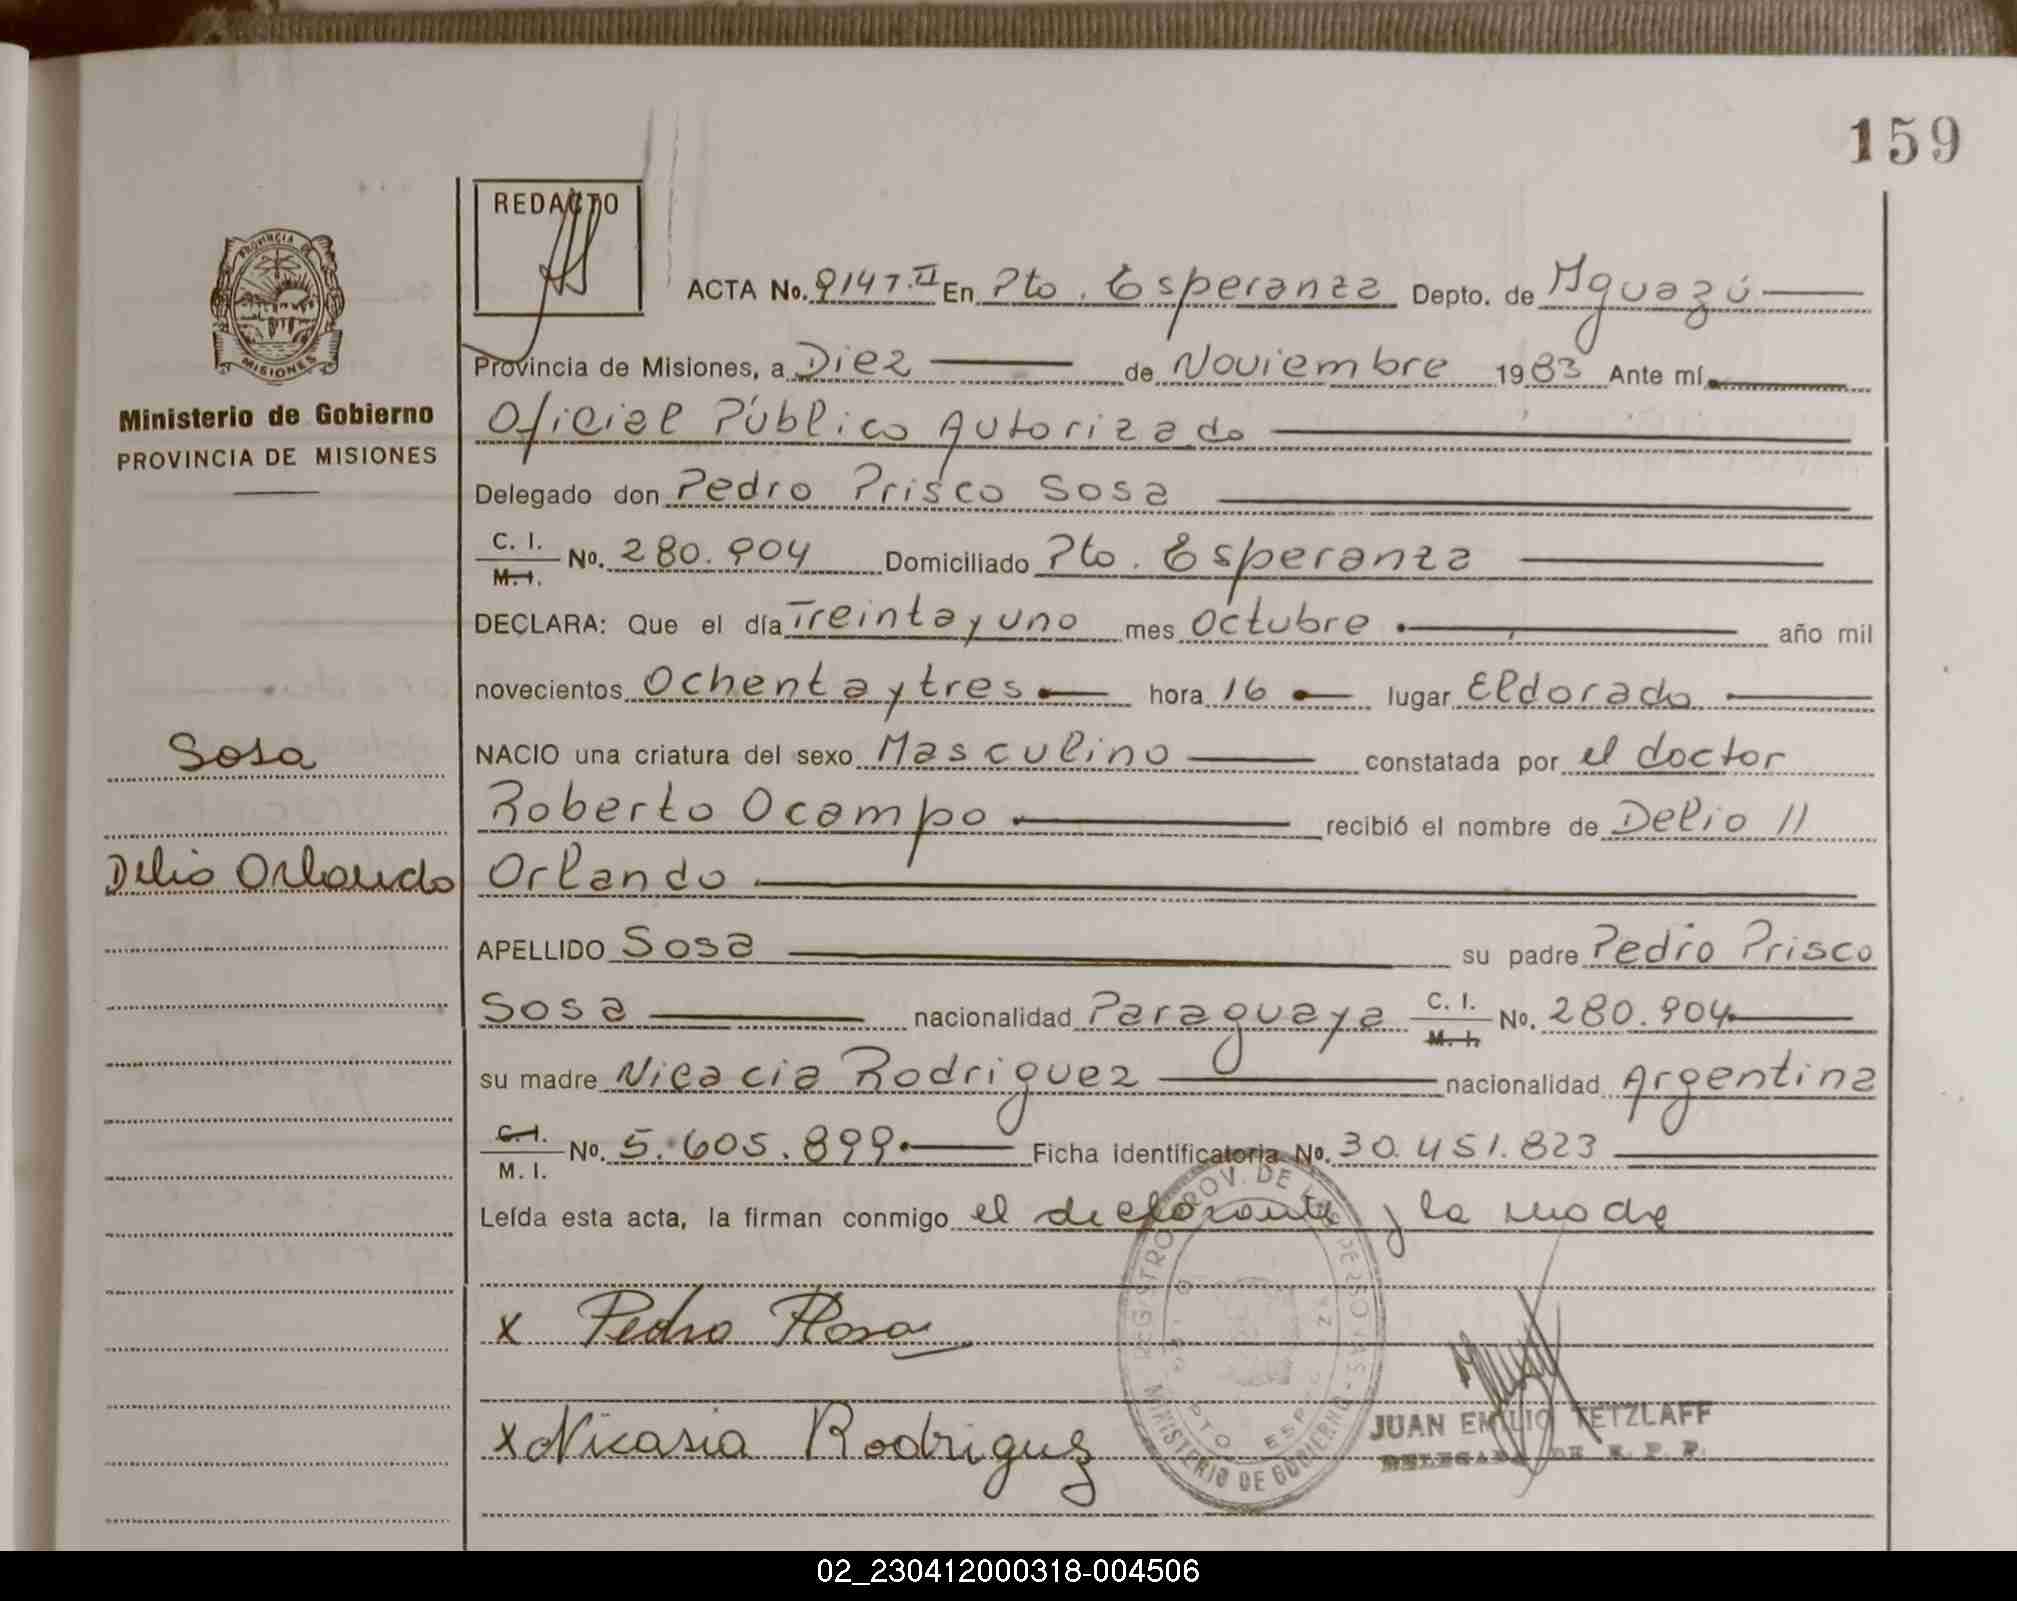 159
REDACTO
PROVINCIA DE
MISIONES
Ministerio de Gobierno
PROVINCIA DE MISIONES
ACTA No. 9147.II En Pto. Esperanza Depto. de Iguazú
Provincia de Misiones, a Diez de Noviembre 1983 Ante mí
Oficial Público Autorizado
Delegado don Pedro Prisco Sosa
C. I.
M. I. No. 280.904 Domiciliado Pto. Esperanza
DECLARA: Que el día Treinta y uno mes Octubre año mil
novecientos Ochenta y tres hora 16 lugar Eldorado
Sosa
NACIO una criatura del sexo Masculino constatada por el doctor
Roberto Ocampo recibió el nombre de Delio //
Delio Orlando
Orlando
APELLIDO Sosa su padre Pedro Prisco
Sosa nacionalidad Paraguaya C. I. M. I. No. 280.904
su madre Nicacia Rodriguez nacionalidad Argentina
C. I.
M. I. No. 5.605.899 Ficha identificatoria No. 30.451.823
Leída esta acta, la firman conmigo el declarante y la madre
x Pedro P Sosa
x Nicasia Rodriguez
REGISTRO PROV. DE LAS PERSONAS
MINISTERIO DE GOBIERNO
PTO ESPERANZA
JUAN EMILIO TETZLAFF
DELEGADO DE R. P. P.
02_230412000318-004506